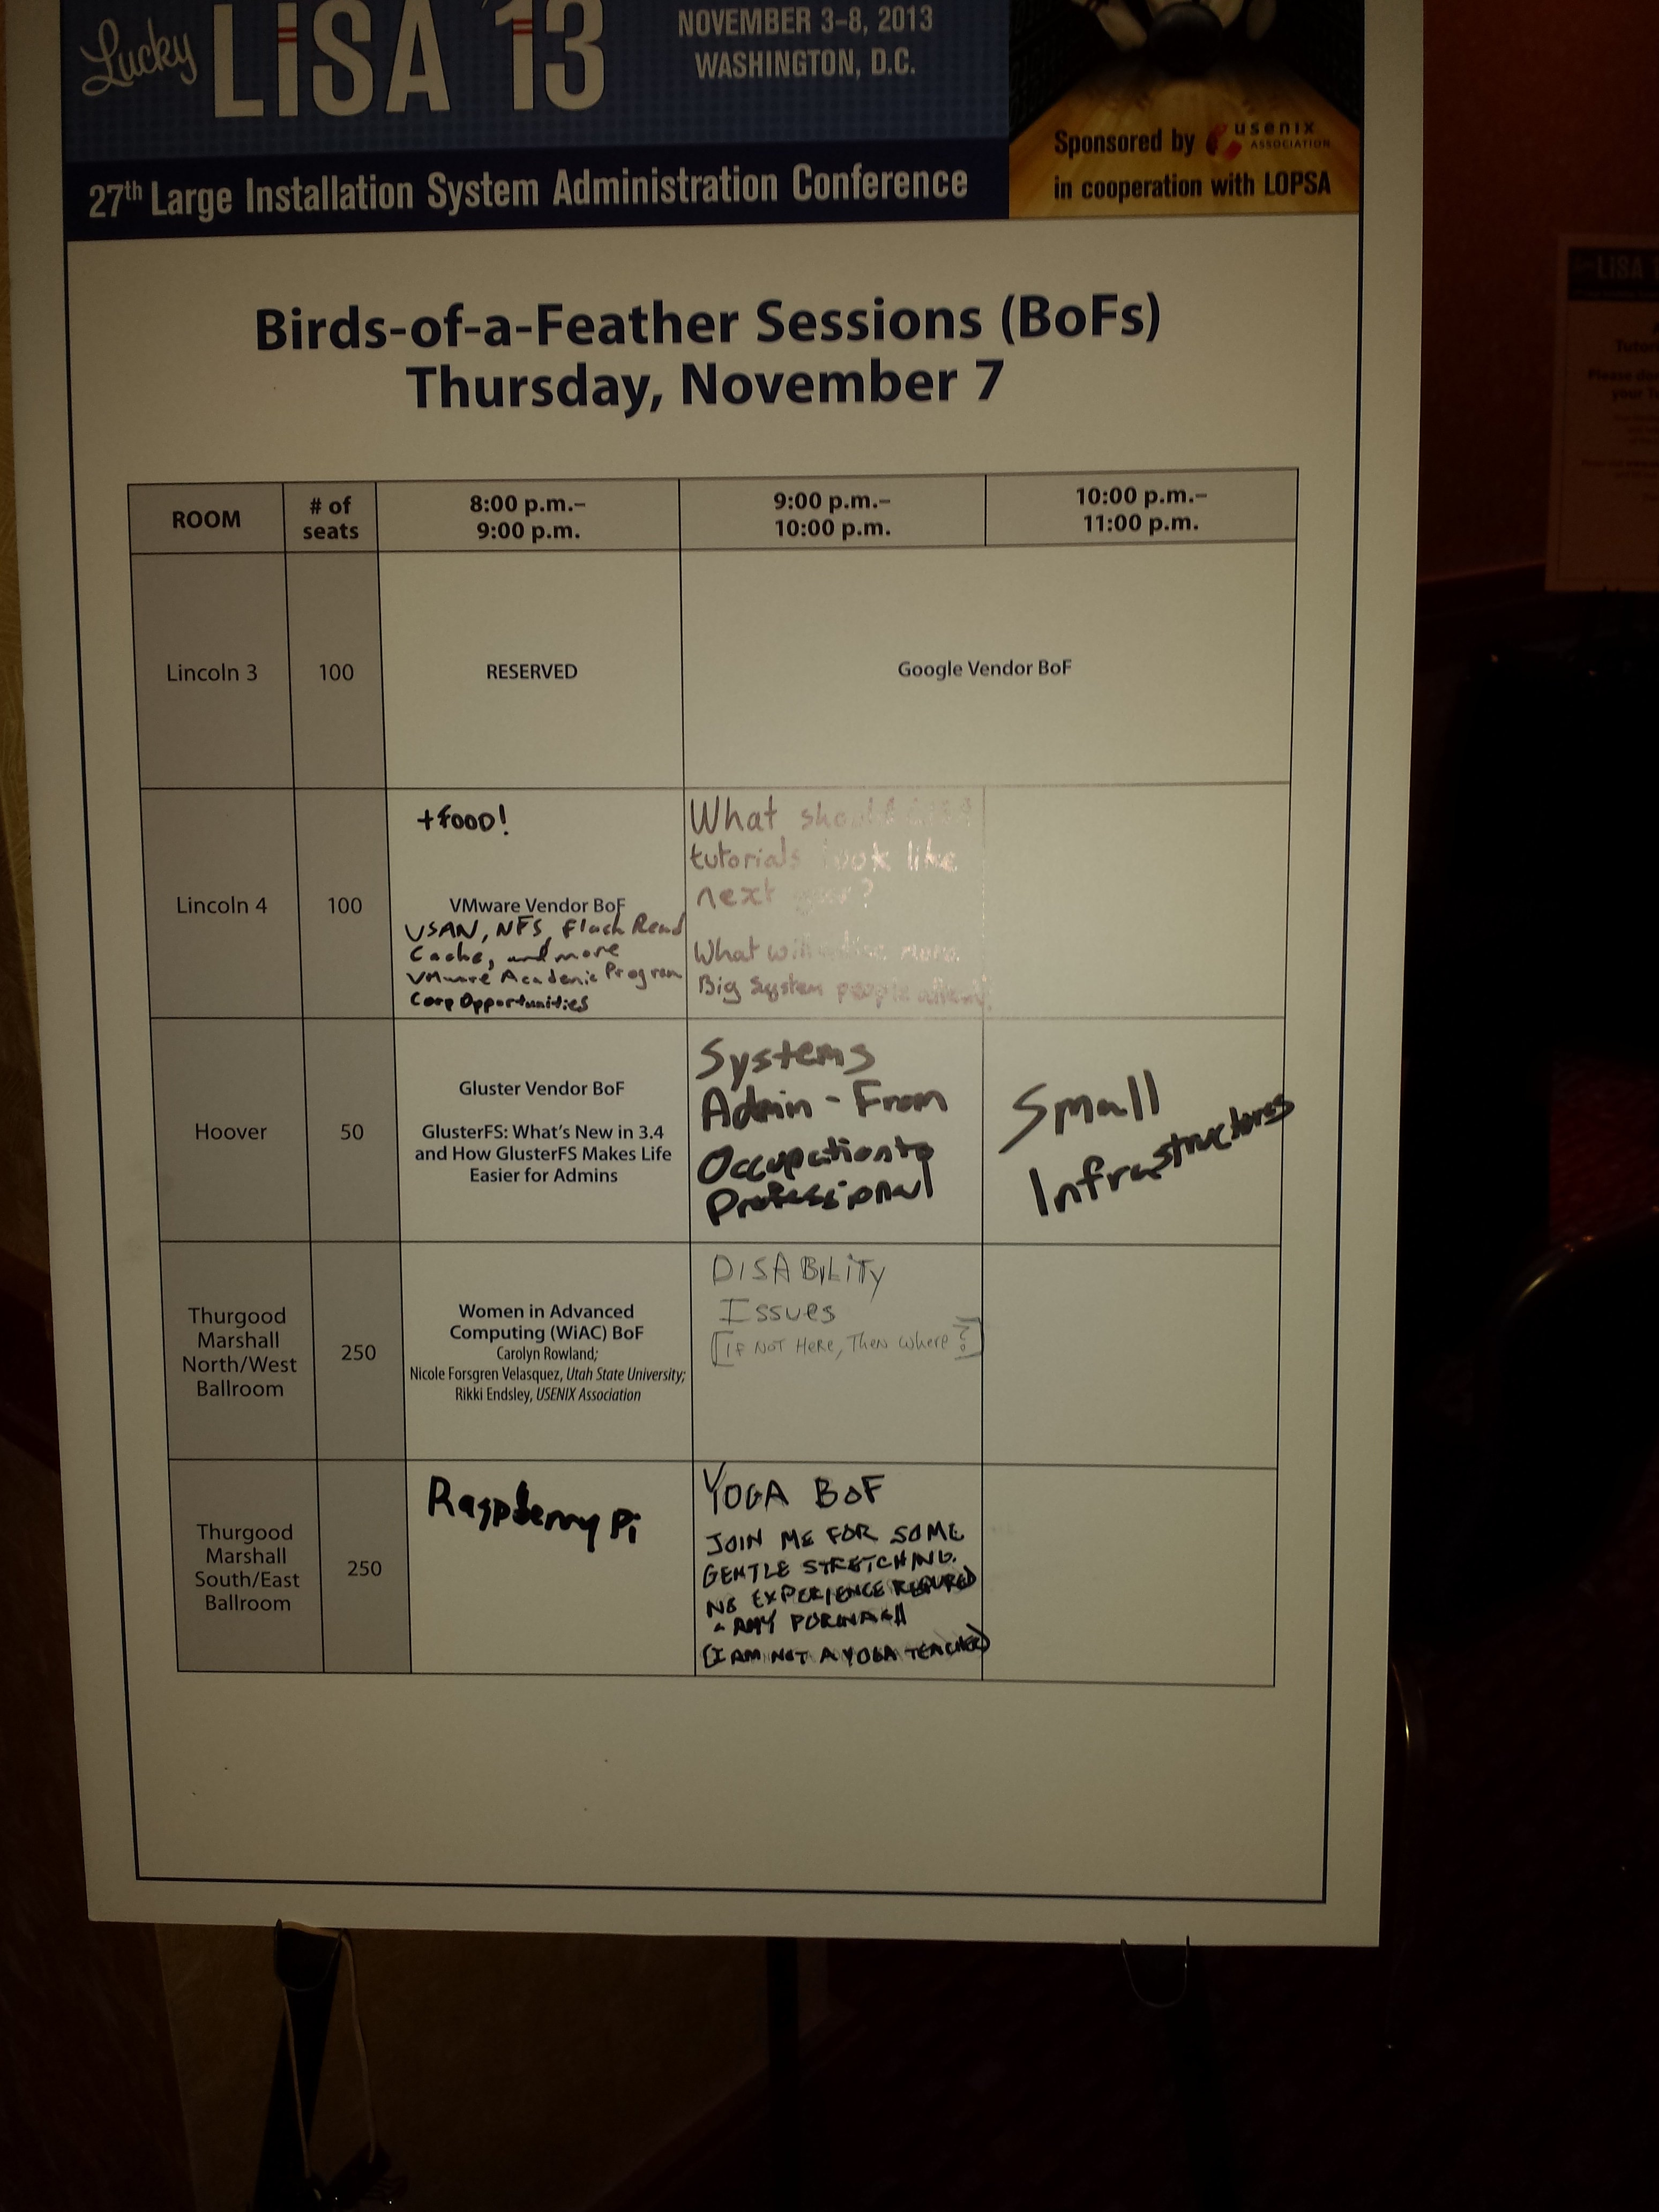 Lucky LiSA '13
NOVEMBER 3–8, 2013
WASHINGTON, D.C.
27th Large Installation System Administration Conference
Sponsored by usenix ASSOCIATION
in cooperation with LOPSA
Birds-of-a-Feather Sessions (BoFs)
Thursday, November 7
ROOM
# of
seats
8:00 p.m.–
9:00 p.m.
9:00 p.m.–
10:00 p.m.
10:00 p.m.–
11:00 p.m.
Lincoln 3
100
RESERVED
Google Vendor BoF
Lincoln 4
100
+FOOD!
VMware Vendor BoF
VSAN, NFS, Flash Read
Cache, and more
VMware Academic Program
Corp Opportunities
What should LISA
tutorials look like
next year?
What will
Big System people
Hoover
50
Gluster Vendor BoF
GlusterFS: What's New in 3.4
and How GlusterFS Makes Life
Easier for Admins
Systems
Admin - From
Occupation to
Professional
Small
Infrastructures
Thurgood
Marshall
North/West
Ballroom
250
Women in Advanced
Computing (WiAC) BoF
Carolyn Rowland;
Nicole Forsgren Velasquez, Utah State University;
Rikki Endsley, USENIX Association
DISABILITY
ISSUES
[IF NOT HERE, THEN WHERE?]
Thurgood
Marshall
South/East
Ballroom
250
Raspberry Pi
YOGA BOF
JOIN ME FOR SOME
GENTLE STRETCHING.
NO EXPERIENCE REQUIRED
- AMY
(I AM NOT A YOGA TEACHER)
LiSA
your